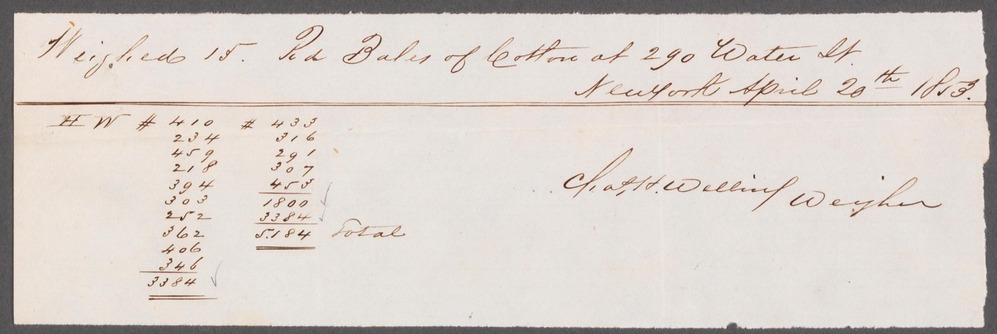 Weighed 15. Rd Bales of Cotton at 290 Water St.
New York April 20th 1853.
H W # 410 # 433
234 316
459 291
218 307
394 453
303 1800
252 3384
362 5.184 Total
406
346
3384
Chas H. Weigher